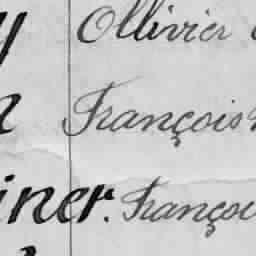 y Ollivier
n François
iner. Françoi